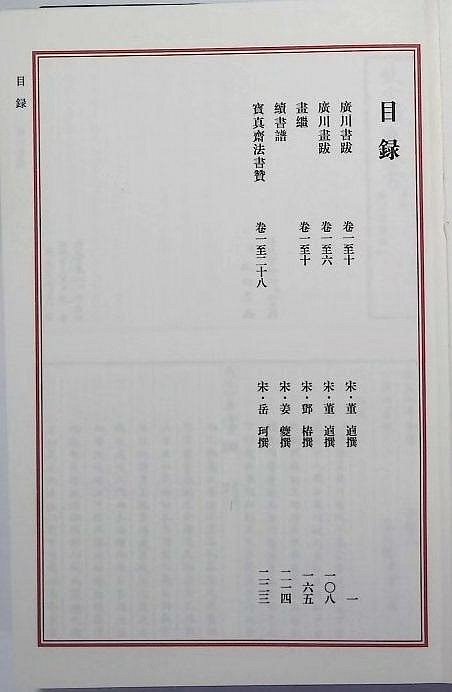 目録
廣川書跋 卷一至十 宋·董逌撰 一
廣川畫跋 卷一至六 宋·董逌撰 一〇八
畫繼 卷一至十 宋·鄧椿撰 一六五
續書譜 宋·姜夔撰 二一四
寶真齋法書贊 卷一至二十八 宋·岳珂撰 二二三
目録